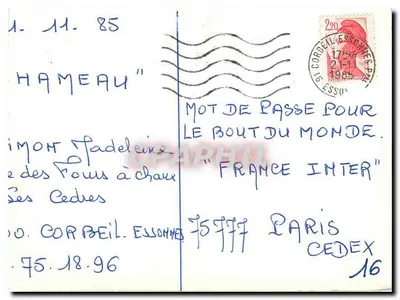 1. 11. 85
HAMEAU"
SIMON Madeleine
e des Fours à chaux
Les Cedres
00. CORBEIL. ESSONNES
. 75.18.96
2,20
91 CORBEIL-ESSONNES PPAL
17H
21-11
1985
ESSONNE
MOT DE PASSE POUR
LE BOUT DU MONDE.
"FRANCE INTER"
75777 PARIS
CEDEX
16